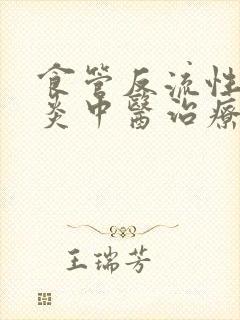 食管反流性
炎中醫治療
王瑞芳